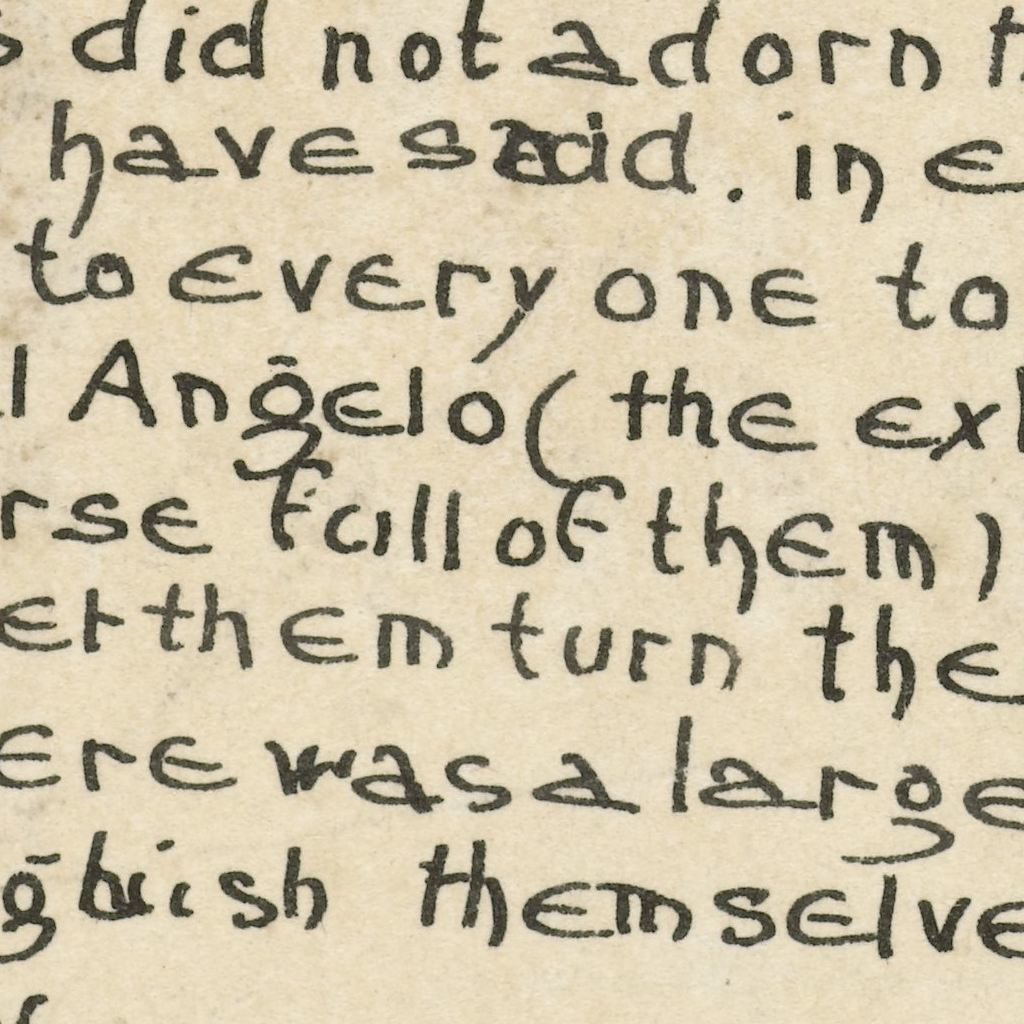 s did not adorn
have said. in e
to every one to
l Angelo (the ex
rse full of them)
er them turn the
ere was a large
guish themselve